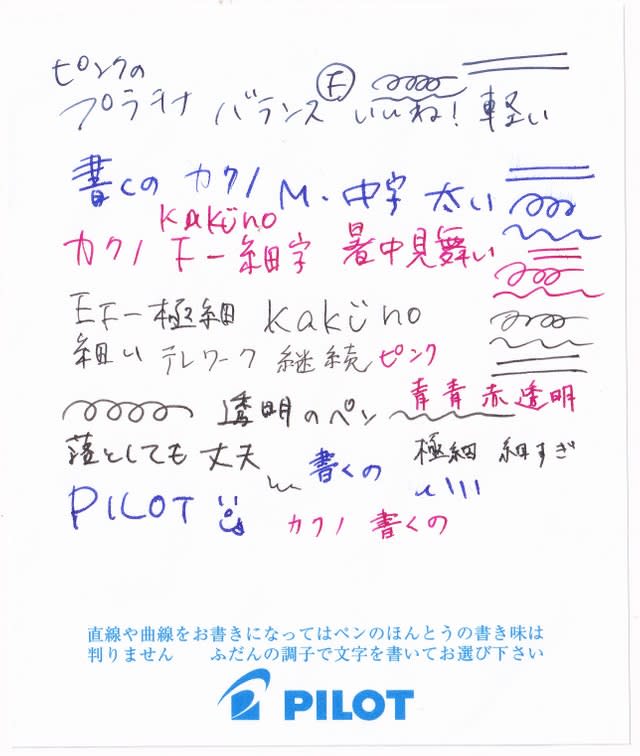 ピンクの
プラチナ バランス F いいね! 軽い
書くの カクノ M・中字 太い
kaküno
カクノ F－細字 暑中見舞い
EF－極細 kaküno
細い テレワーク 継続 ピンク
青 青 赤 透明
透明のペン
落としても丈夫 書くの 極細 細すぎ
PILOT
カクノ 書くの
直線や曲線をお書きになってはペンのほんとうの書き味は
判りません ふだんの調子で文字を書いてお選び下さい
PILOT